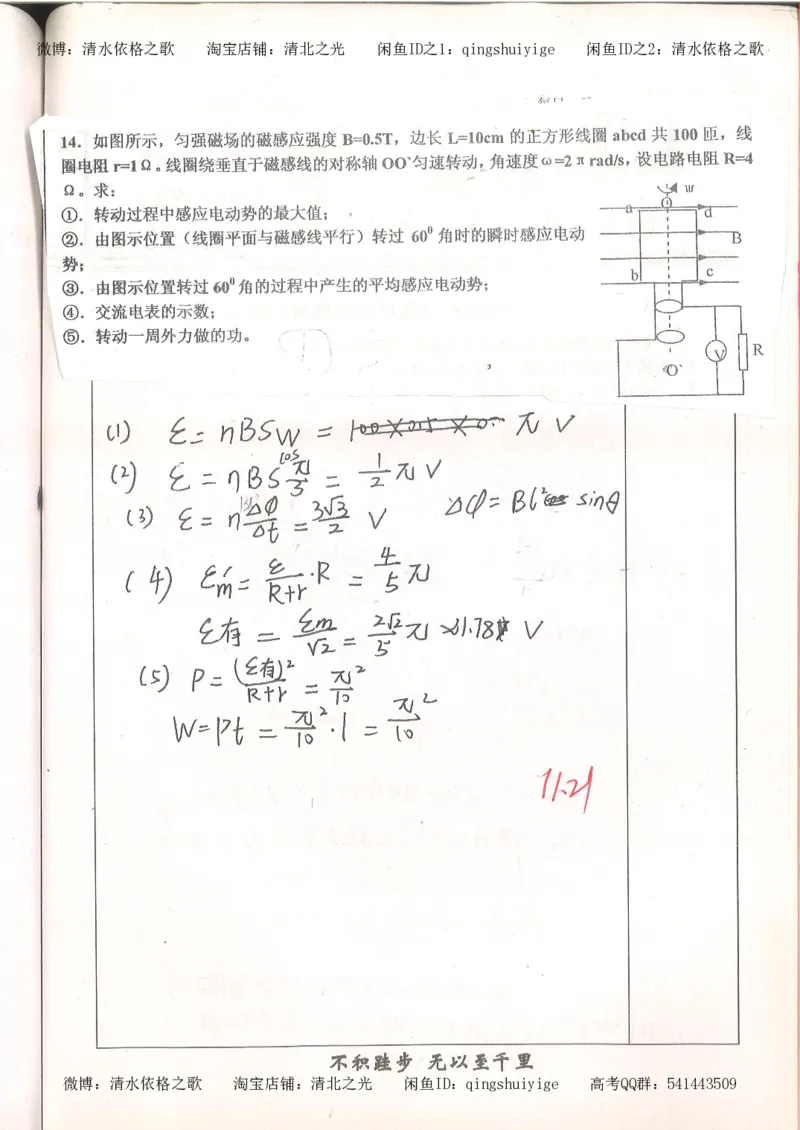 微博：清水依格之歌 淘宝店铺：清北之光 闲鱼ID之1：qingshuiyige 闲鱼ID之2：清水依格之歌
14．如图所示，匀强磁场的磁感应强度 B=0.5T，边长 L=10cm 的正方形线圈 abcd 共 100 匝，线
圈电阻 r=1Ω。线圈绕垂直于磁感线的对称轴 OO`匀速转动，角速度ω=2πrad/s，设电路电阻 R=4
Ω。求：
①．转动过程中感应电动势的最大值；
②．由图示位置（线圈平面与磁感线平行）转过 60⁰ 角时的瞬时感应电动
势；
③．由图示位置转过 60⁰ 角的过程中产生的平均感应电动势；
④．交流电表的示数；
⑤．转动一周外力做的功。
w
O
a d
B
b c
V R
O`
(1) ε = nBSω = π V
(2) ε = nBS cos π/3 = 1/2 π V
(3) ε = n ΔΦ/Δt = 3√3/2 V Δφ = Bl² sinθ
(4) εm′ = ε/(R+r) · R = 4/5 π
ε有 = εm/√2 = 2√2/5 π ≈1.78 V
(5) P = (ε有)²/(R+r) = π²/10
W=Pt = π²/10 · 1 = π²/10
11.21
不积跬步 无以至千里
微博：清水依格之歌 淘宝店铺：清北之光 闲鱼ID：qingshuiyige 高考QQ群：541443509